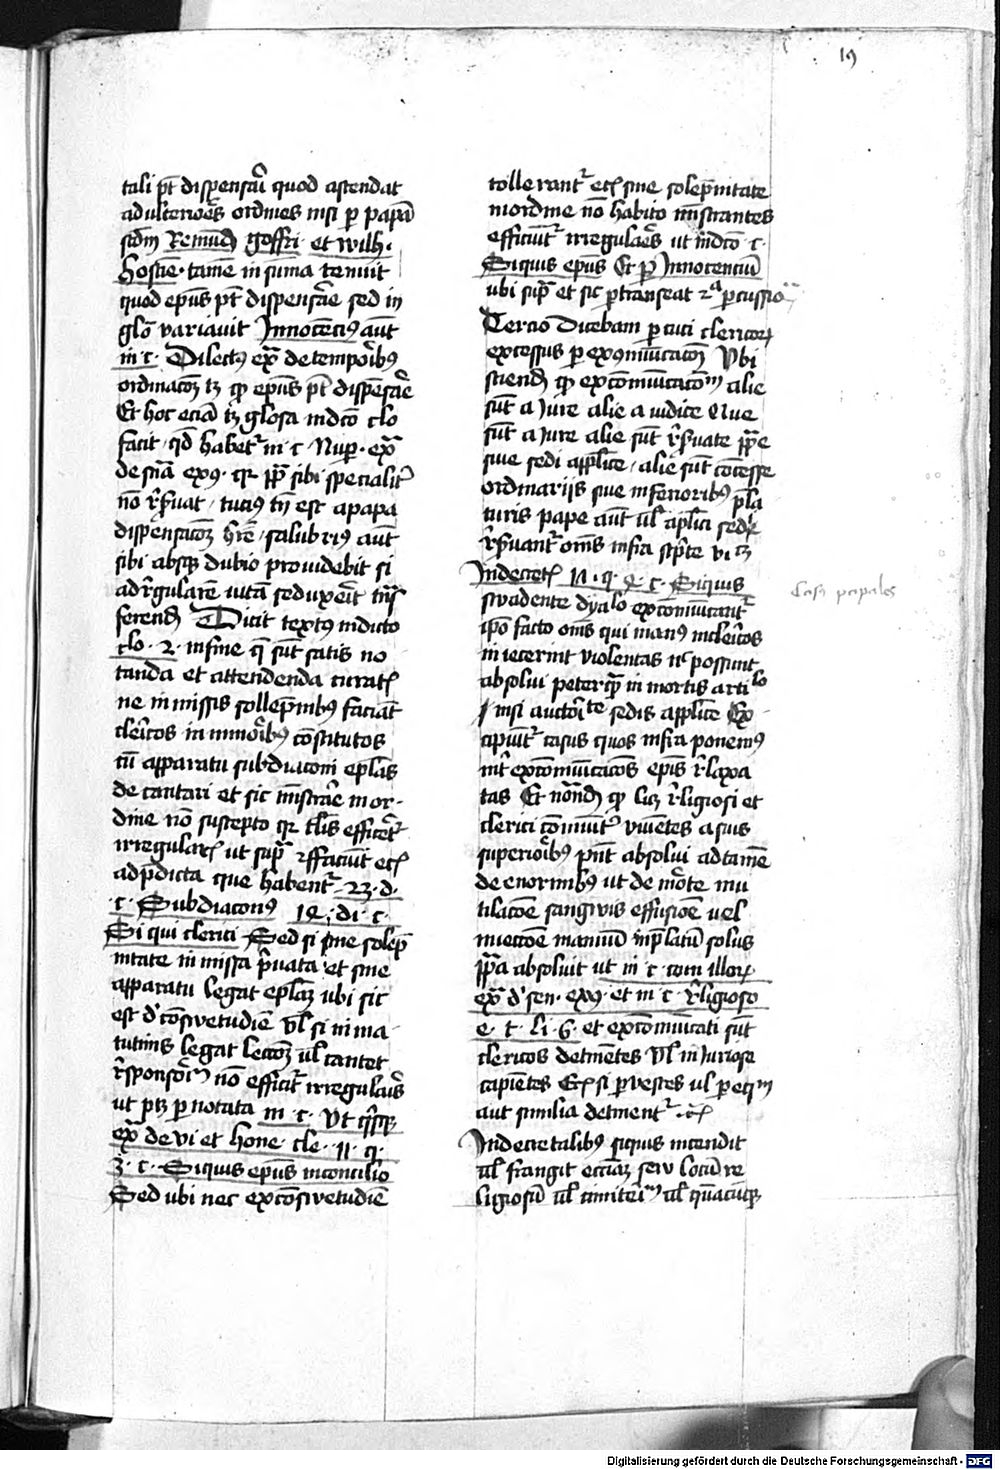 19
tali pt dispensari quod astendat
adulteriores ordines nisi per papam
scdm Remund goffri et wilh.
hostien. tamen in suma tenuit
quod epus pt dispensare sed in
glo variavit Innocencius aut
in c. Dilectus ex de temporibus
ordinatom tz qp epus pt dispensare
Et hoc eciam tz glosa in dcto clo
facit qd habetr in c. Nup. ex
de snia exc. qr pp sibi specialiter
non reservat tucius tn est a papa
dispensatom hre salubrius aut
sibi absque dubio providebit si
ad reglarem vitam seduxerit tnsferend
ferend Dicit textus in dicto
clo. 2. in fine que sunt satis no
tanda et attendenda curatis
ne in missis sollempnibus faciant
clericos in minoribus constitutos
cum apparatu subdiaconi eplas
decantari et sic ministrare in or-
dine non suscepto qr tales efficetur
irregulares ut supra efficiunt etc
ad predicta que habentur 23. d.
c. Subdiaconus 19. di. c.
Si qui clerici Sed si sine solemp
nitate in missa privata et sine
apparatu legat eplam ubi sic
est de consuetudine Vl si in ma-
tutinis legat lectom vel cantet
responsorium non efficitur irregularis
ut ptz per notata in c. Ut quisque
ex de vi et hone. cle. 11. q.
3. c. Siquis epus in concilio
Sed ubi nec ex consuetudine
tollerantur etc sine solempnitate
in ordine non habito ministrantes
efficiuntur irregulares ut in dcto c.
Siquis epus Et per Innocencium
ubi supra et sic pertranseat 2a percussio
Tercio Dicebam percuti clericorum
excessus per excommunicatom Ubi
sciend qp excommunicatom alie
sunt a Jure alie a iudice Que
sunt a Jure alie sunt reservate pape
sive sedi applice alie sunt concesse
ordinariis sive inferioribus prela
turis pape aut vel aplici sede
reservantur omnes infra scripte vi cz
In decretis 17. q. 4. c. Siquis
swadente dyalo excommunicantur
ipso facto omnes qui manus in clericos
in iecerint violentas nec possunt
absolui preterquam in mortis articulo
nisi auctoritate sedis applice Ex-
cipiuntur casus quos infra ponemus
inter excommunicatos epis relaxa
tas Et notand qp licet religiosi et
clerici communiter viventes a suis
superioribus possint absolui ad tamen
de enormibus ut de morte mu
tilacone sangwis effusione vel
iniectone manuum in prelatum solus
papa absoluit ut in c. cum illorum
ex de sen. exc. et in c. religioso
e. t. li. 6. et excommunicati sunt
clericos detinentes Vl iniuriose
capientes Etsi per vestes vel per equm
aut similia detinentur
In decretalibus siquis incendit
vel frangit eccliam seu locum re
ligiosum vel cimiterium vel quamcumque
Casus papales
Digitalisierung gefördert durch die Deutsche Forschungsgemeinschaft - DFG